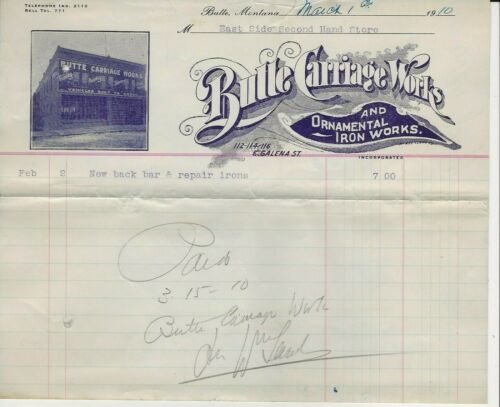 TELEPHONE IND. 2110
BELL TEL. 771
Butte, Montana, March 1st 1910
M East Side Second Hand Store
BUTTE CARRIAGE WORKS
Butte Carriage Works
AND
ORNAMENTAL
IRON WORKS.
112-114-116
E. GALENA ST.
INCORPORATED
Feb 2 New back bar & repair irons 7 00
Paid
3-15-10
Butte Carriage Works